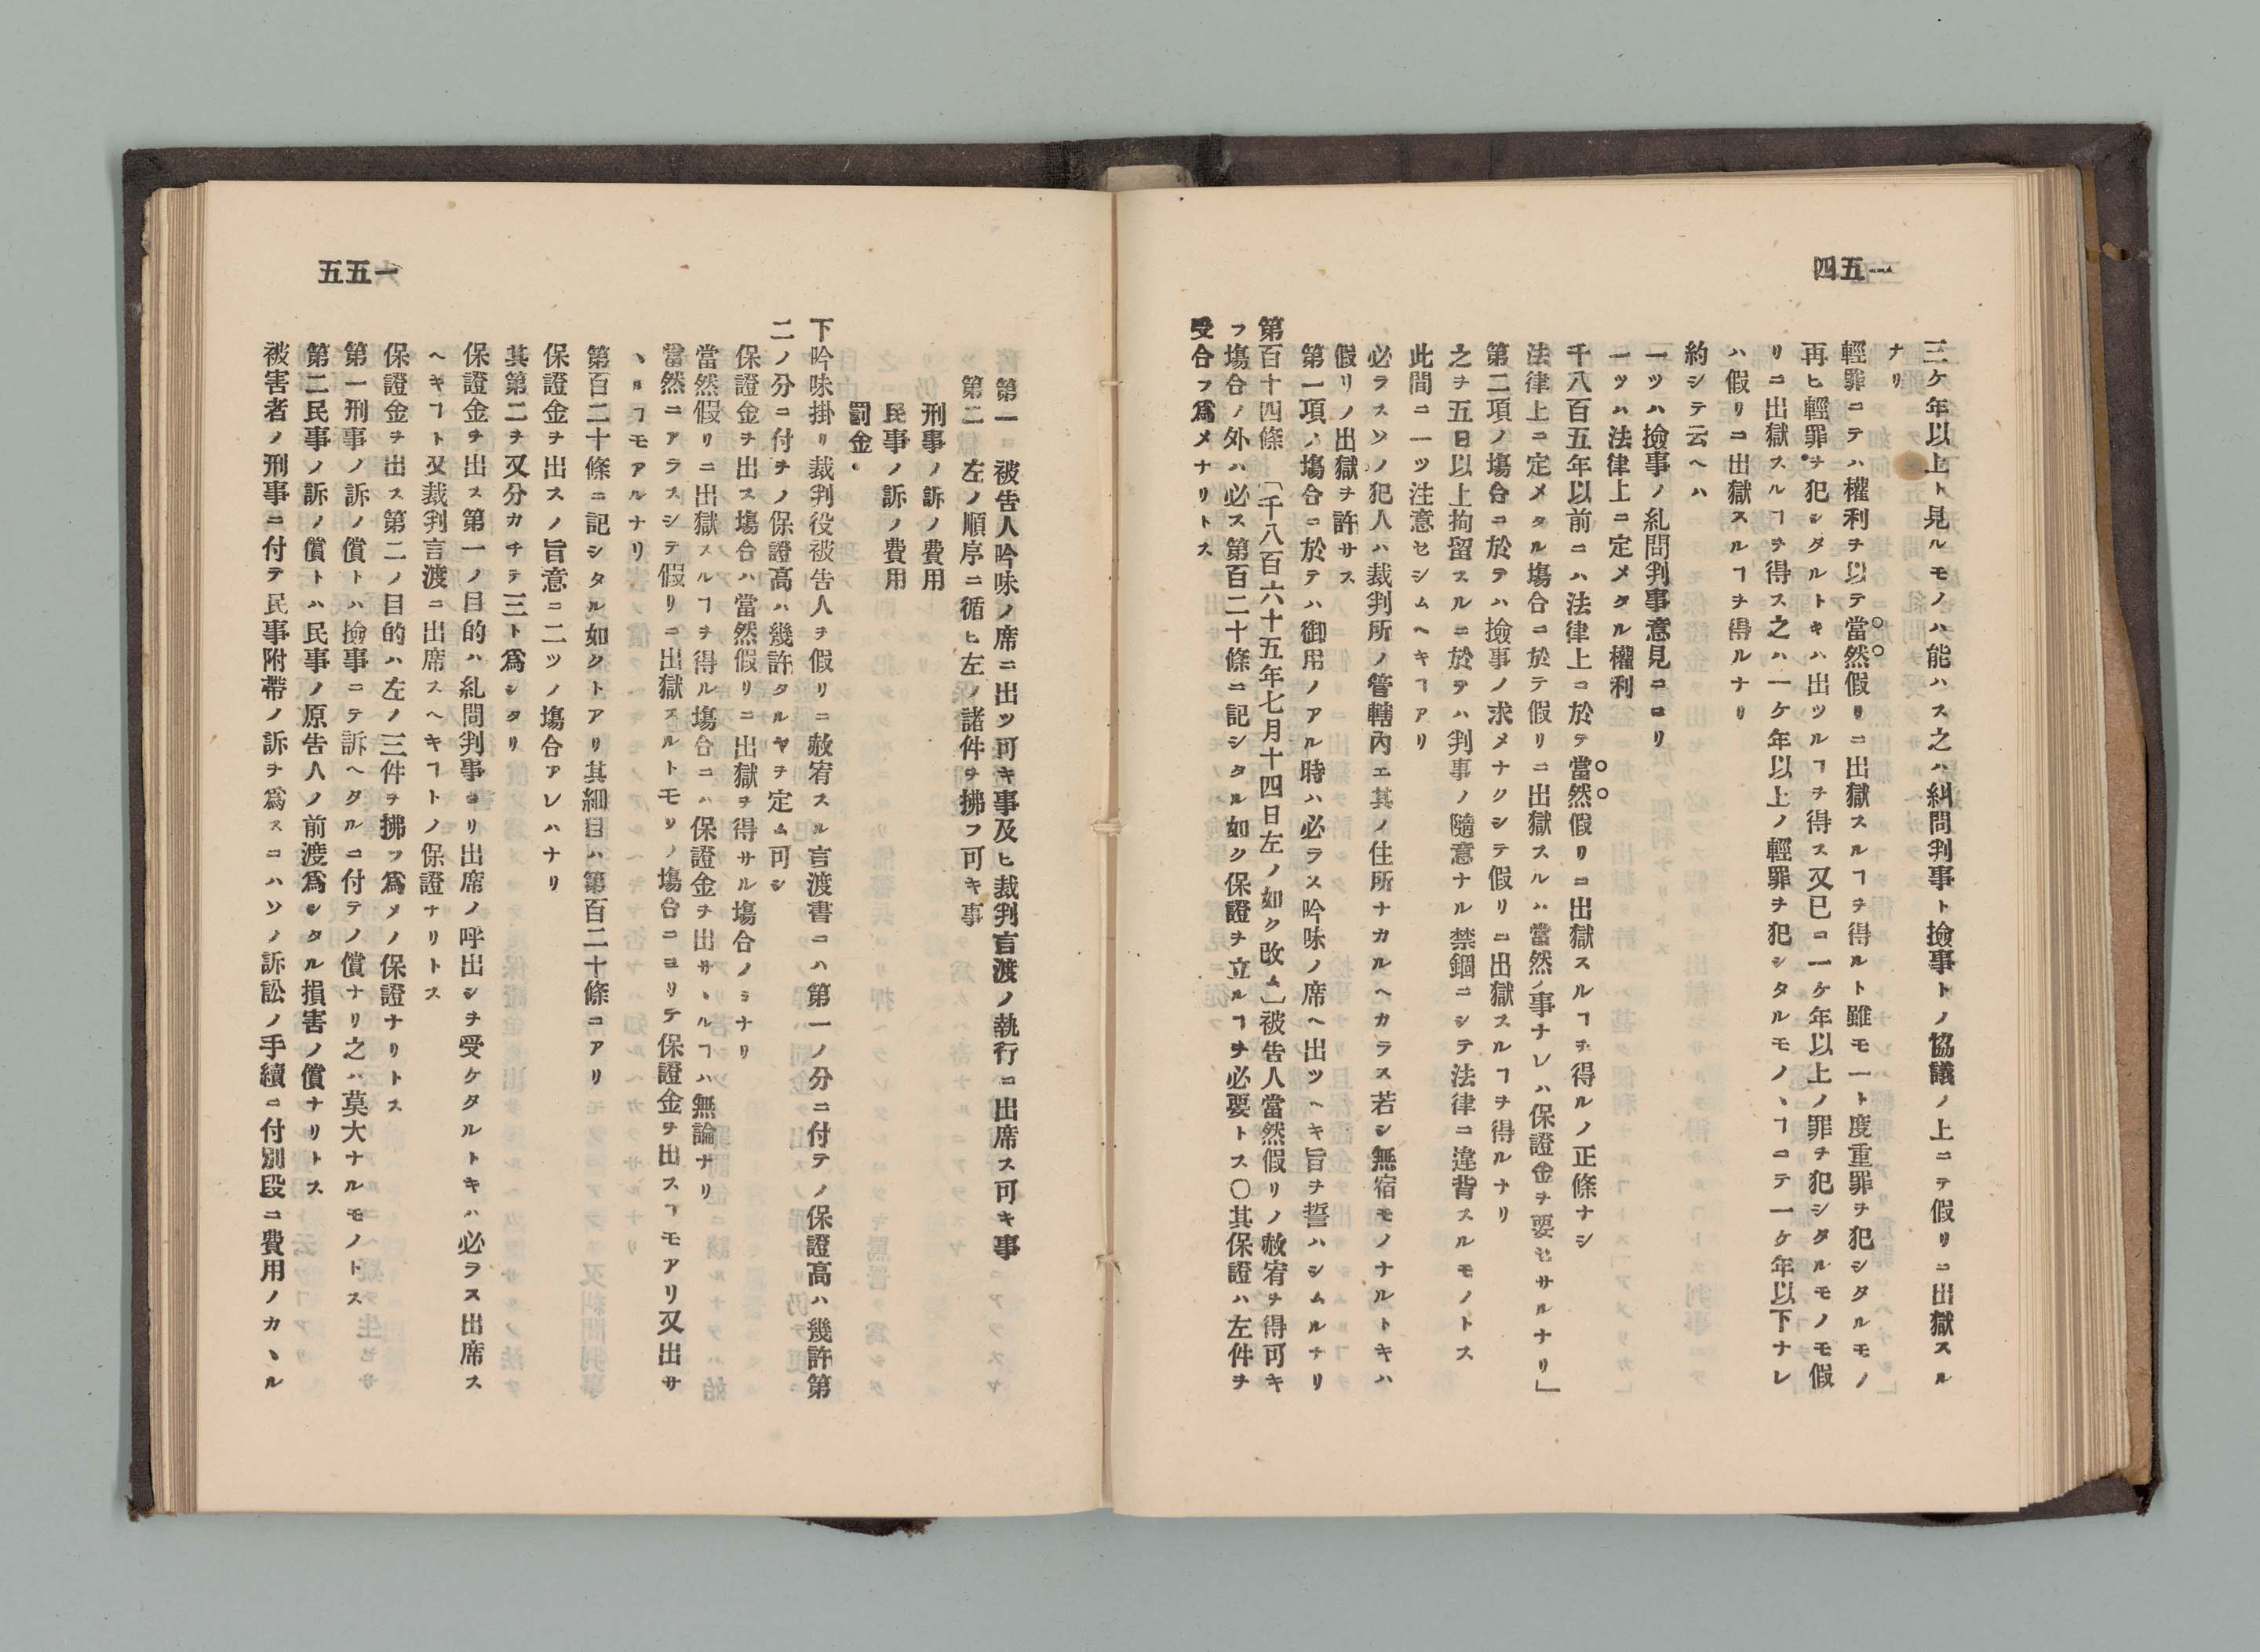 一五四
三ケ年以上ト見ルモノハ能ハス之ハ糾問判事ト撿事トノ協議ノ上ニテ假リニ出獄スル
ナリ
輕罪ニテハ權利ヲ以テ當然假リニ出獄スルヿヲ得ルト雖モ一ト度重罪ヲ犯シタルモノ
再ヒ輕罪ヲ犯シタルトキハ出ツルヿヲ得ス又已ニ一ケ年以上ノ罪ヲ犯シタルモノモ假
リニ出獄スルヿヲ得ス之ハ一ケ年以上ノ輕罪ヲ犯シタルモノヽヿニテ一ケ年以下ナレ
ハ假リニ出獄スルヿヲ得ルナリ
約シテ云ヘハ
一ツハ撿事ノ糺問判事意見ニヨリ
一ツハ法律上ニ定メタル權利
千八百五年以前ニハ法律上ニ於テ當然假リニ出獄スルヿヲ得ルノ正條ナシ
法律上ニ定メタル塲合ニ於テ假リニ出獄スルハ當然ノ事ナレハ保證金ヲ要セサルナリ」
第二項ノ塲合ニ於テハ撿事ノ求メナクシテ假リニ出獄スルヿヲ得ルナリ
之ヲ五日以上拘留スルニ於テハ判事ノ隨意ナル禁錮ニシテ法律ニ違背スルモノトス
此間ニ一ツ注意セシムヘキヿアリ
必ラスソノ犯人ハ裁判所ノ管轄內エ其ノ住所ナカルヘカラス若シ無宿モノナルトキハ
假リノ出獄ヲ許サス
第一項ノ塲合ニ於テハ御用ノアル時ハ必ラス吟味ノ席ヘ出ツヘキ旨ヲ誓ハシムルナリ
第百十四條〔千八百六十五年七月十四日左ノ如ク改ム〕被告人當然假リノ赦宥ヲ得可キ
フ塲合ノ外ハ必ス第百二十條ニ記シタル如ク保證ヲ立ルヿヲ必要トス〇其保證ハ左件ヲ
受合フ爲メナリトス
一五五
第一 被告人吟味ノ席ニ出ツ可キ事及ヒ裁判言渡ノ執行ニ出席ス可キ事
第二 左ノ順序ニ循ヒ左ノ諸件ヲ拂フ可キ事
刑事ノ訴ノ費用
民事ノ訴ノ費用
罰金
下吟味掛リ裁判役被告人ヲ假リニ赦宥スル言渡書ニハ第一ノ分ニ付テノ保證高ハ幾許第
二ノ分ニ付テノ保證高ハ幾許タルヤヲ定ム可シ
保證金ヲ出ス塲合ハ當然假リニ出獄ヲ得サル塲合ノミナリ
當然假リニ出獄スルヿヲ得ル塲合ニハ保證金ヲ出サヽルヿハ無論ナリ
當然ニアラスシテ假リニ出獄スルトモソノ塲合ニヨリテ保證金ヲ出スヿモアリ又出サ
ヽルヿモアルナリ
第百二十條ニ記シタル如クトアリ其細目ハ第百二十條ニアリ
保證金ヲ出スノ旨意ニ二ツノ塲合アレハナリ
其第二ヲ又分カチテ三ト爲シタリ
保證金ヲ出ス第一ノ目的ハ糺問判事ヨリ出席ノ呼出シヲ受ケタルトキハ必ラス出席ス
ヘキヿト又裁判言渡ニ出席スヘキヿトノ保證ナリトス
保證金ヲ出ス第二ノ目的ハ左ノ三件ヲ拂フ爲メノ保證ナリトス
第一刑事ノ訴ノ償トハ撿事ニテ訴ヘタルニ付テノ償ナリ之ハ莫大ナルモノトス
第二民事ノ訴ノ償トハ民事ノ原告人ノ前渡爲シタル損害ノ償ナリトス
被害者ノ刑事ニ付テ民事附帶ノ訴ヲ爲スニハソノ訴訟ノ手續ニ付別段ニ費用ノカヽル